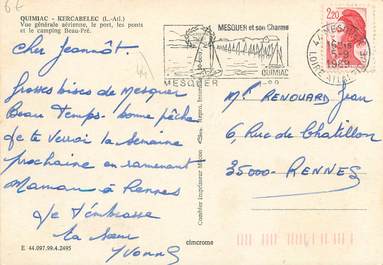 6€
QUIMIAC - KERCABELEC (L.-Atl.)
Vue générale aérienne, le port, les ponts
et le camping Beau-Pré.
cher Jeannôt.
Grosses bises de Mesquer
Beau Temps. bonne pêche
je te verrai la semaine
prochaine en ramenant
Maman à Rennes
Je t'embrasse
ta sœur
Yvonne
E 44.097.99.4.2495
cimcrome
Combier imprimeur
MESQUER et son Charme
QUIMIAC
MESQUER
44 MESQUER
5-9
1989
LOIRE ATLANTIQUE
2,20
Mr RENOUARD Jean
6, Rue de Chatillon
35000- RENNES